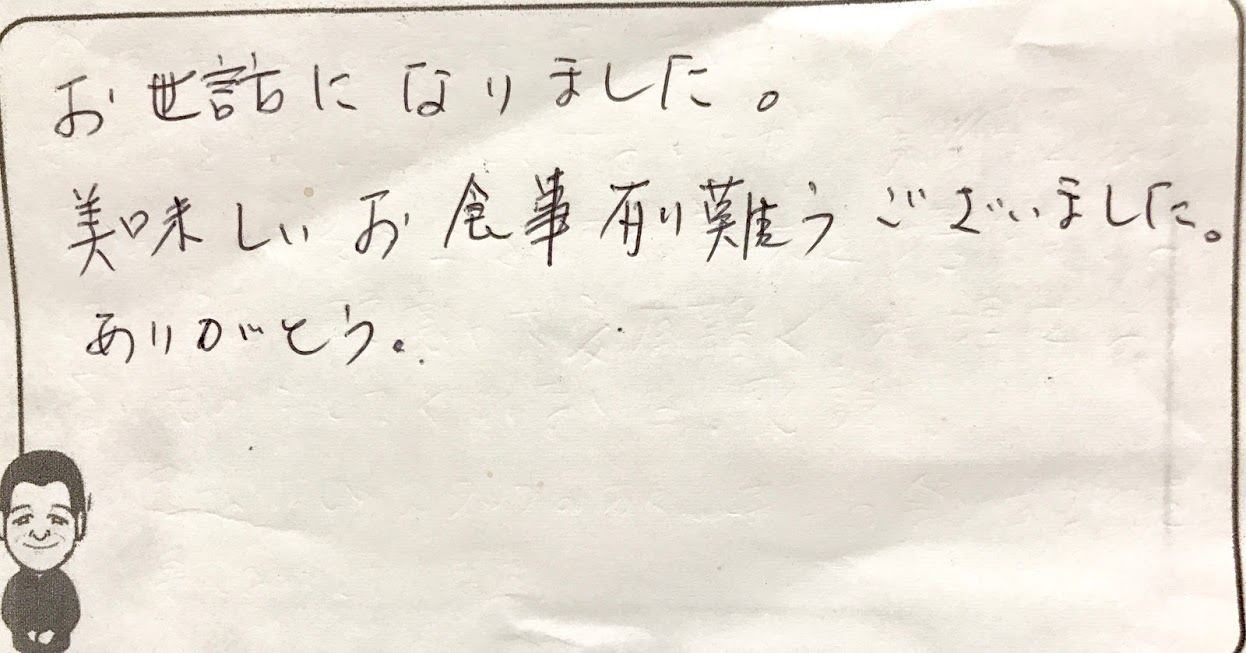 お世話になりました。
美味しいお食事有り難うございました。
ありがとう。